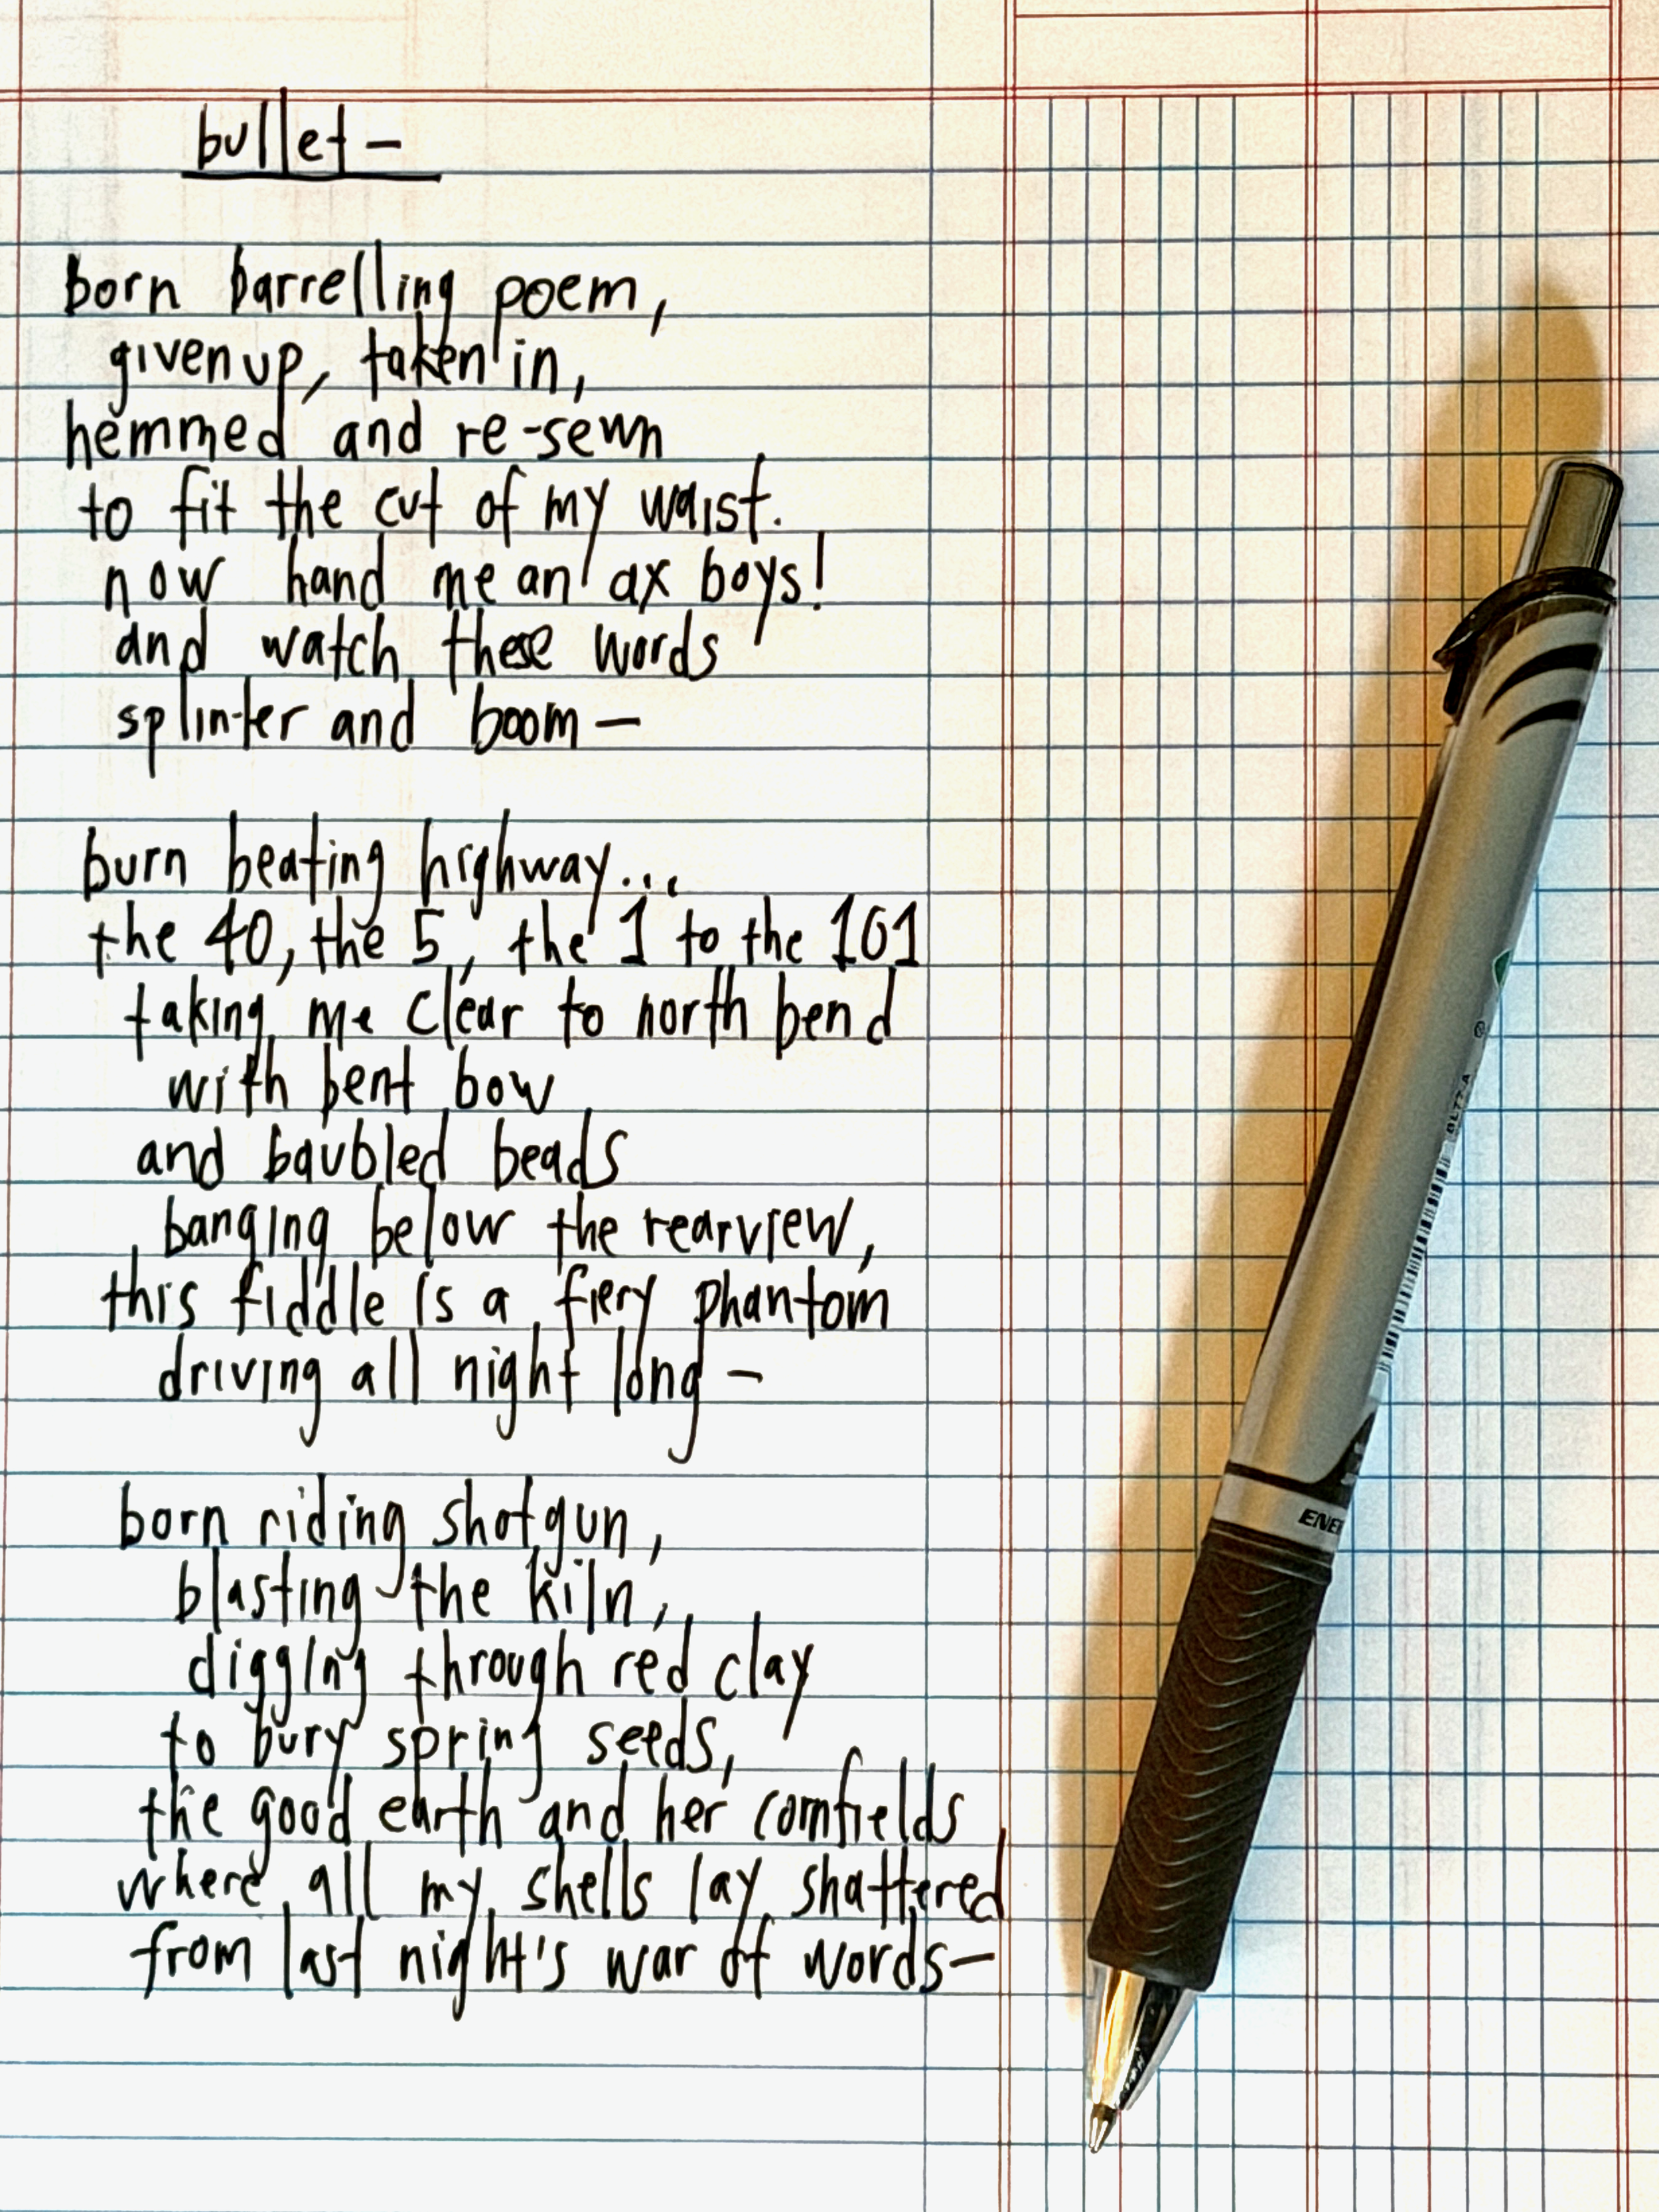 bullet –
born barrelling poem,
given up, taken in,
hemmed and re-sewn
to fit the cut of my waist.
now hand me an ax boys!
and watch these words
splinter and boom –
burn beating highway...
the 40, the 5, the 1 to the 101
taking me clear to north bend
with bent bow
and baubled beads
banging below the rearview,
this fiddle is a fiery phantom
driving all night long –
born riding shotgun,
blasting the kiln,
digging through red clay
to bury spring seeds,
the good earth and her cornfields
where all my shells lay shattered
from last night's war of words –
BL77-A
ENER